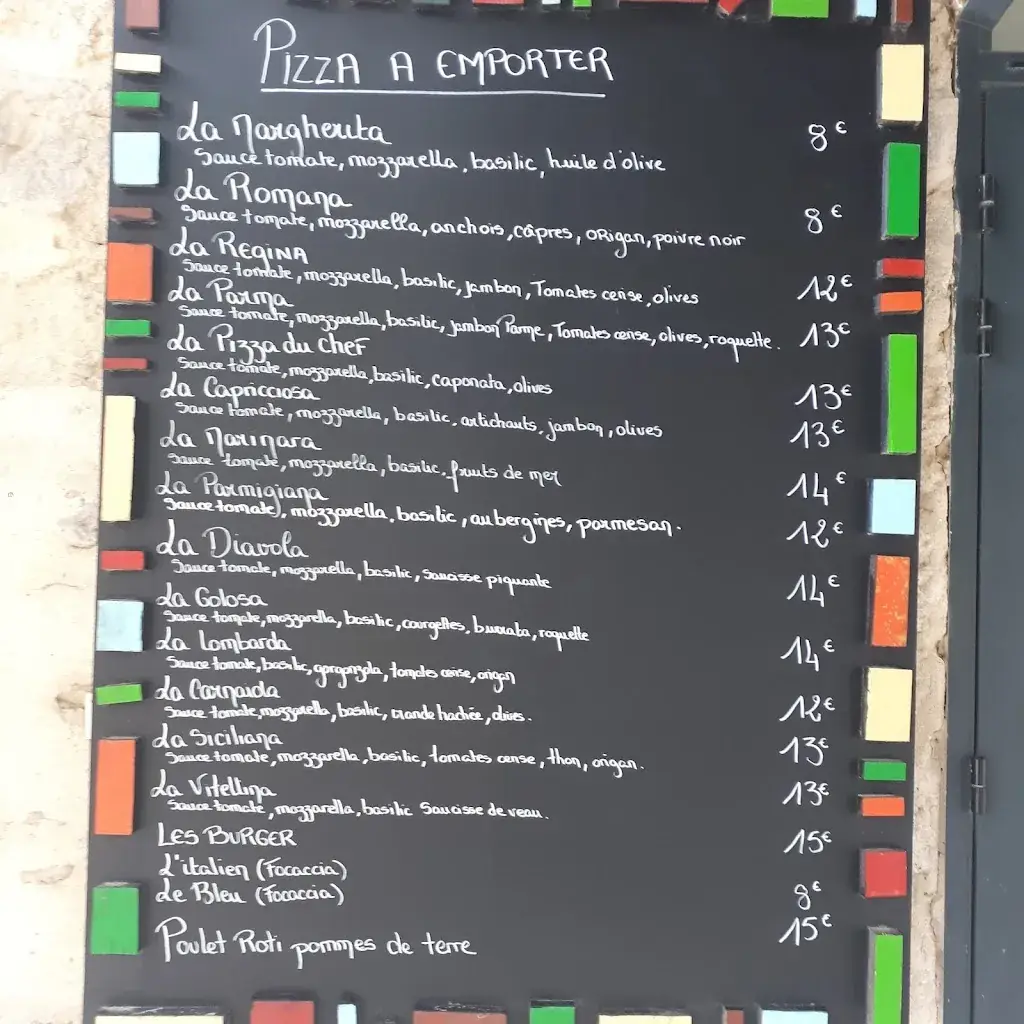 PIZZA A EMPORTER
La Margherita 8€
Sauce tomate, mozzarella, basilic, huile d'olive
La Romana 8€
Sauce tomate, mozzarella, anchois, câpres, origan, poivre noir
La REGINA 12€
Sauce tomate, mozzarella, basilic, jambon, Tomates cerise, olives
La Parma 13€
Sauce tomate, mozzarella, basilic, jambon Parme, Tomates cerise, olives, roquette.
La Pizza du chef 13€
Sauce tomate, mozzarella, basilic, caponata, olives
La Capricciosa 13€
Sauce tomate, mozzarella, basilic, artichauts, jambon, olives
La Marinara 14€
Sauce tomate, mozzarella, basilic, fruits de mer
La Parmigiana 12€
Sauce tomate, mozzarella, basilic, aubergines, parmesan.
La Diavola 14€
Sauce tomate, mozzarella, basilic, saucisse piquante
La Golosa 14€
Sauce tomate, mozzarella, basilic, courgettes, burrata, roquette
La Lombarda 12€
Sauce tomate, basilic, gorgonzola, tomates cerise, origan
La Carnarda 13€
Sauce tomate, mozzarella, basilic, viande hachée, olives.
La Siciliana 13€
Sauce tomate, mozzarella, basilic, tomates cerise, thon, origan.
La Vitellina 15€
Sauce tomate, mozzarella, basilic Saucisse de veau.
LES BURGER
L'italien (Focaccia) 8€
Le Bleu (Focaccia) 15€
Poulet Roti pommes de terre